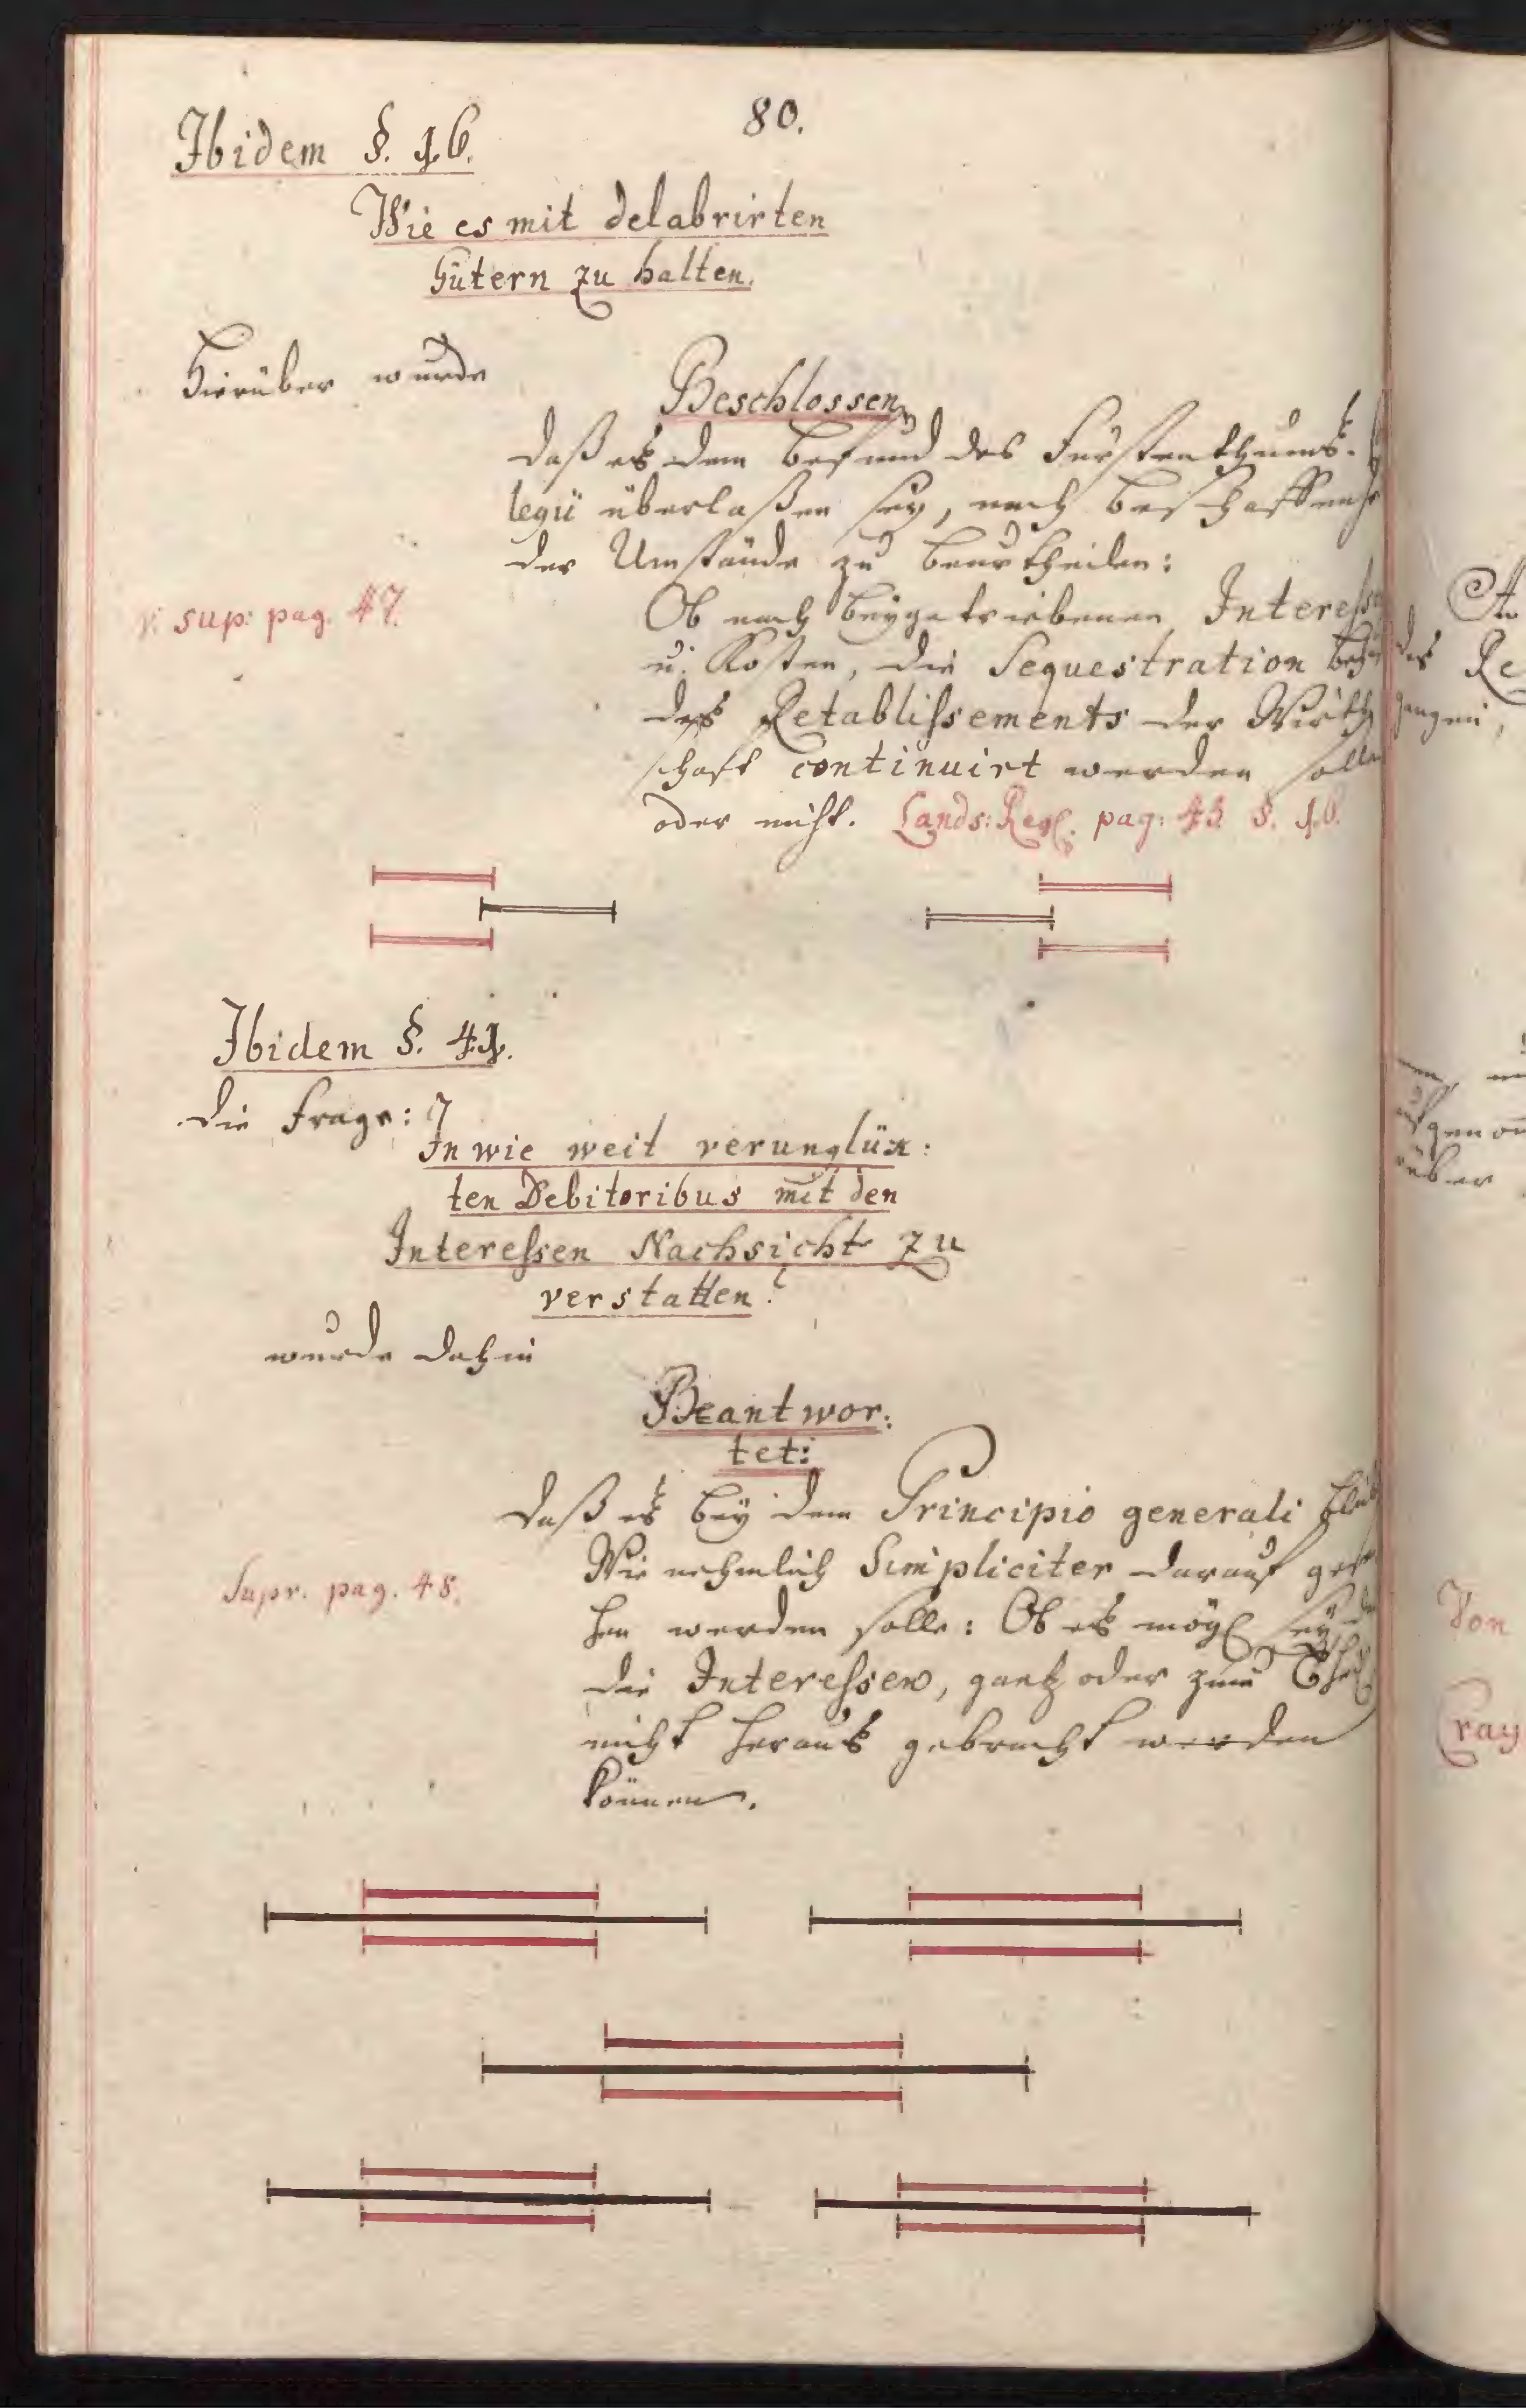 80.
Ibidem §. 16.
Wie es mit delabrirten
Gütern zu halten.
Hierüber wurde
Beschlossen
daß es dem Befund des Fürstenthums-
legii überlaßen sey, nach Beschaffenh
der Umstände zu beurtheilen:
v. sup: pag. 47.
Ob nach beygetriebenen Interesse
u. Kosten, die Sequestration
des Retablissements der Wirth
schaft continuirt werden solle
oder nicht. Lands: Regl. pag: 43 §. 16.
Ibidem §. 41.
die Frage:
In wie weit verunglüx:
ten Debitoribus mit den
Interessen Nachsicht zu
verstatten?
wurde dahin
Beantwor:
tet:
daß es bey dem Principio generali
Wie nehmlich Simpliciter darauf gese
hen werden solle: Ob es mögl sey
Supr. pag. 48.
die Interessen, gantz oder zum Theil
nicht heraus gebracht werden
können.
des Re
Von